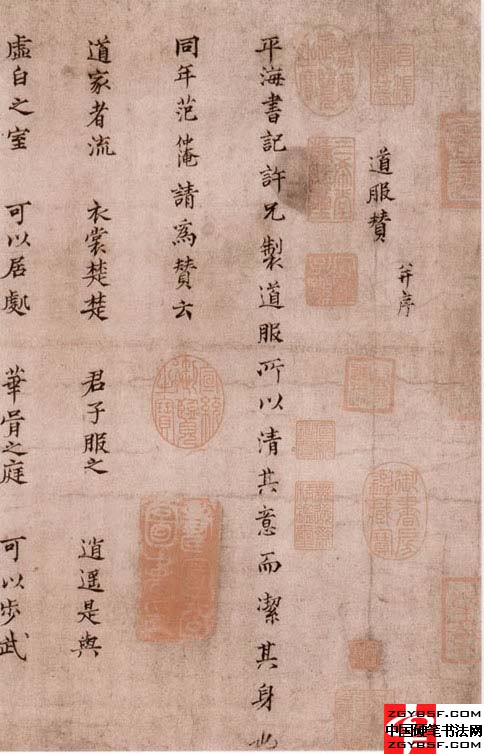 道服贊
并序
平海書記許兄製道服所以清其意而潔其身也
同年范仲淹請爲贊云
道家者流 衣裳楚楚 君子服之 逍遥是與
虛白之室 可以居處 華胥之庭 可以步武
御書房鑑藏寶
ZGYBSF.COM
中国硬笔书法网
ZGYBSF.COM